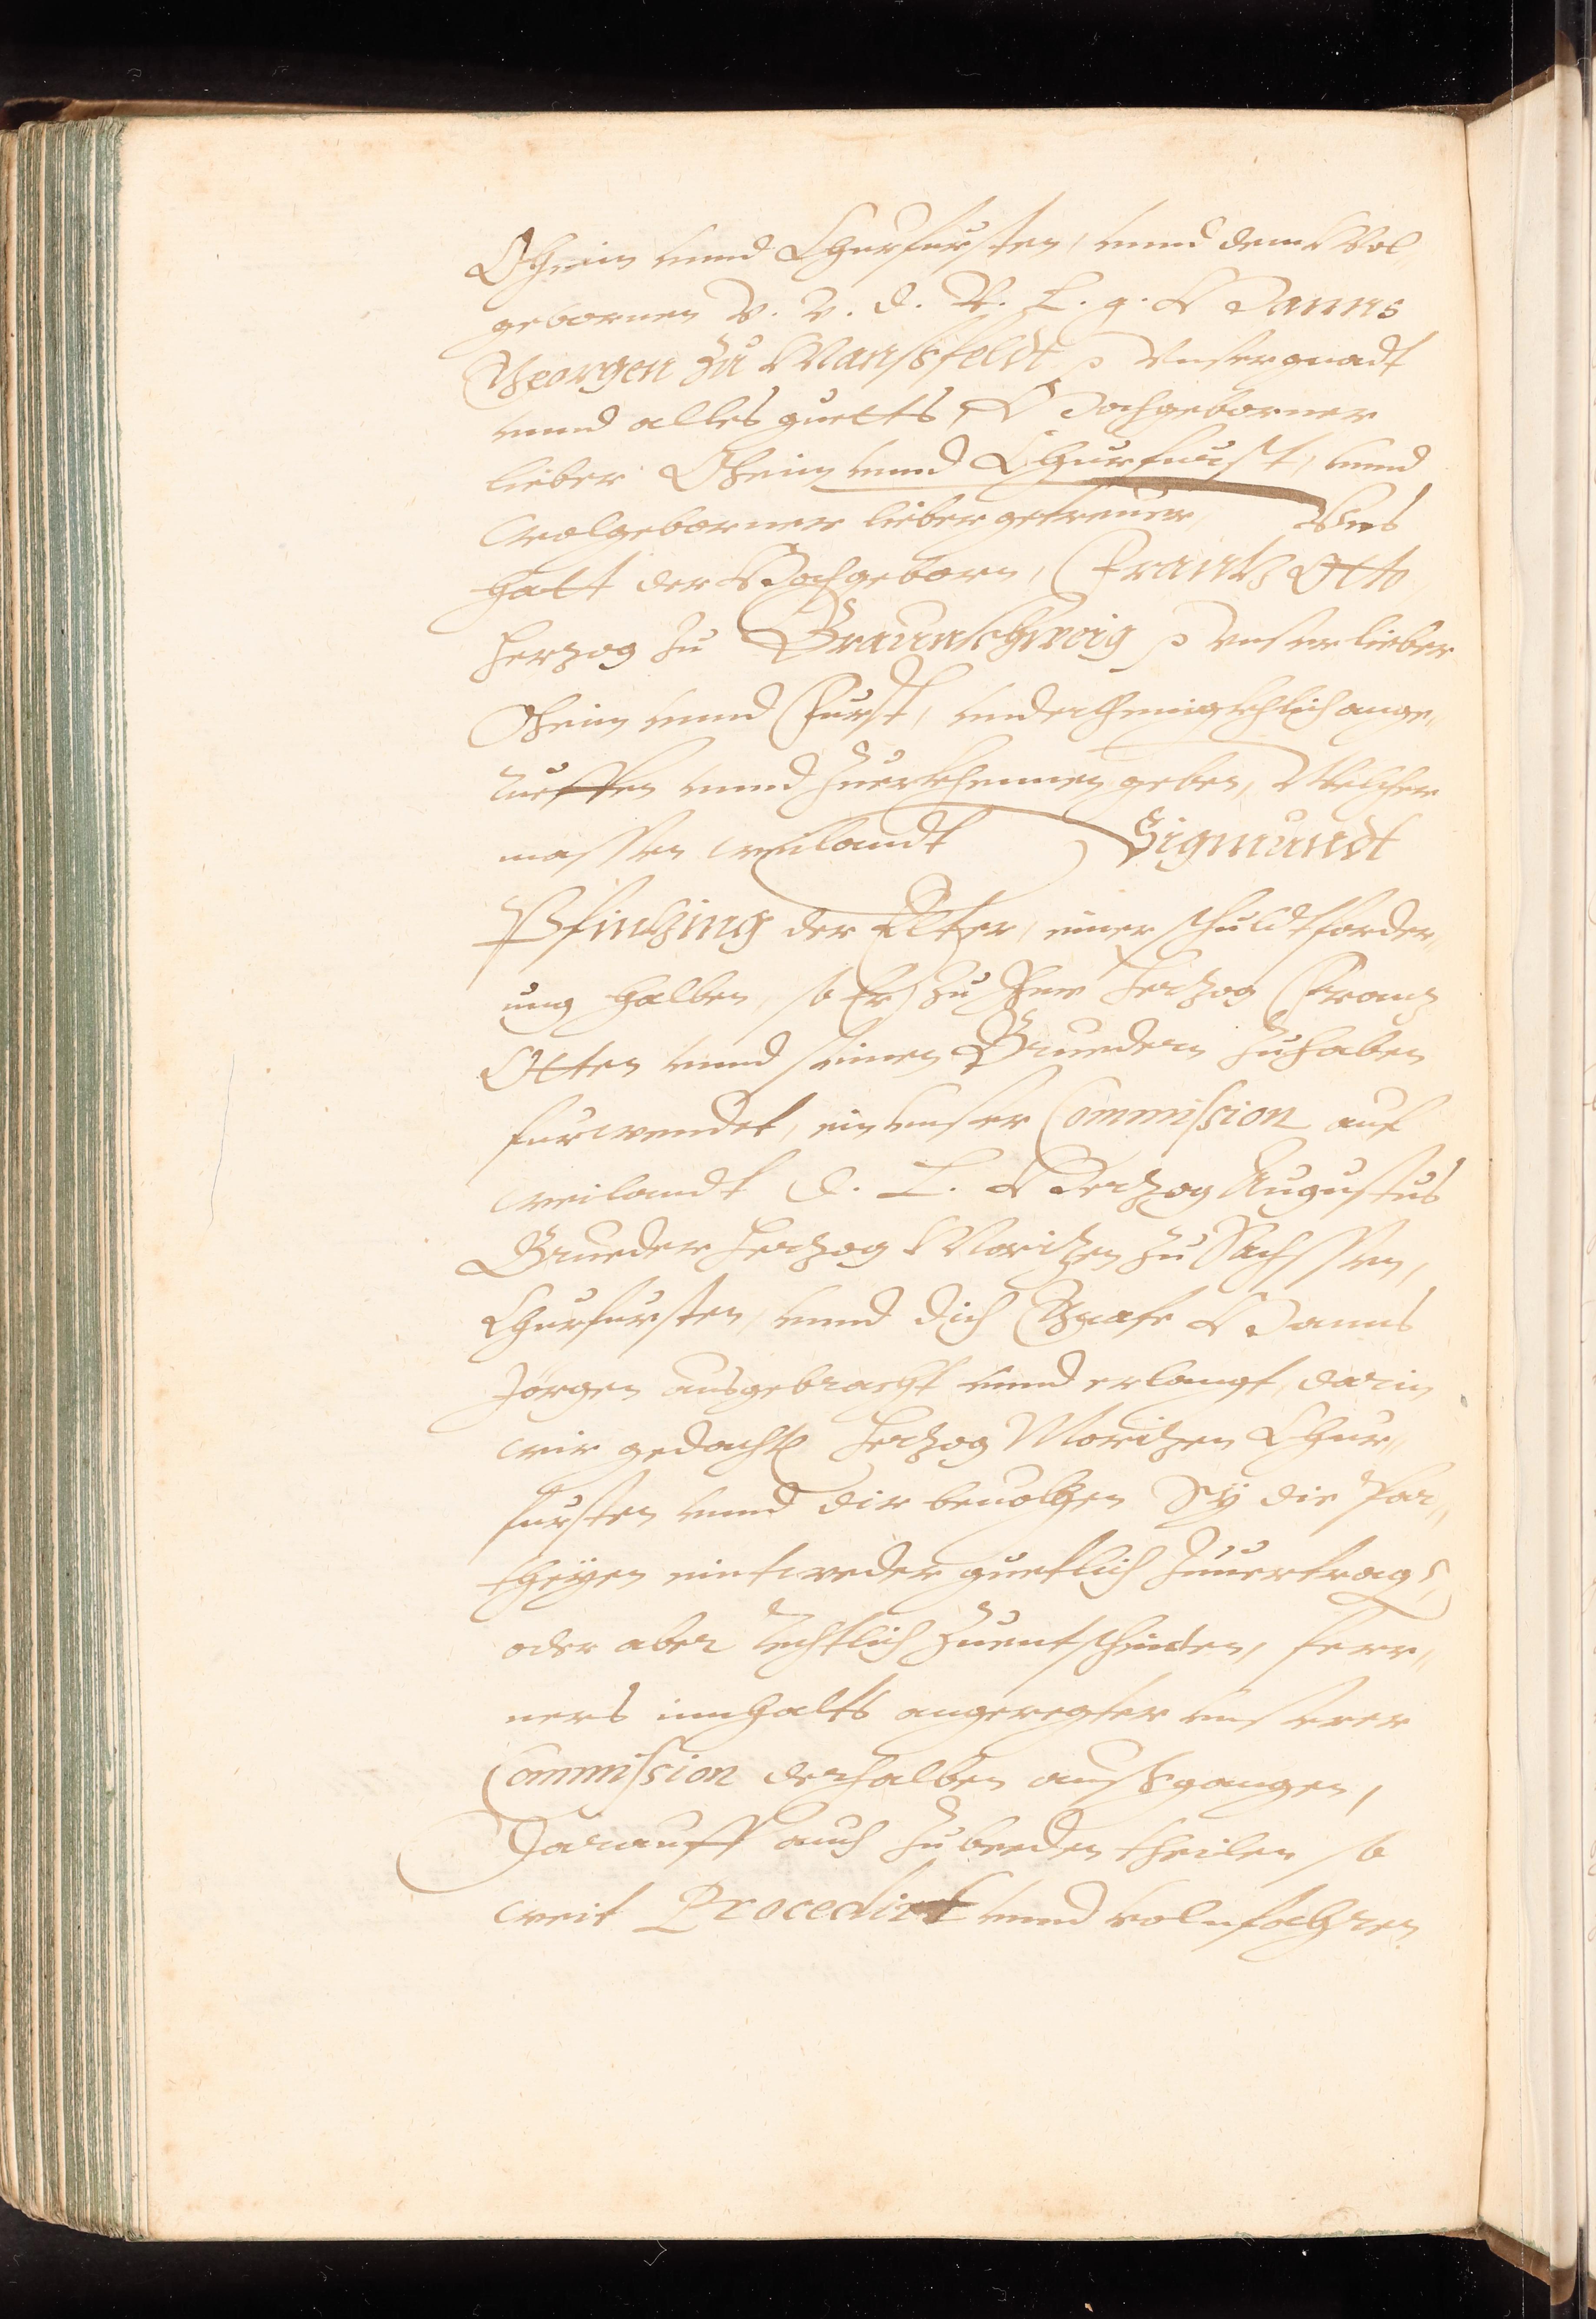 Oheim vnnd Churfürsten, vnnd dem Wol„
gebornen V. v. d. R. L. g. Hanns
Georgen zu Mansfeldt p Vnser gnadt
vnnd alles guetts, Hochgeborner
lieber Oheim vnnd Churfürst, vnnd
wolgeborner lieber getreuer, Vns
hatt der Hochgeborn, Frantz Otto
Hertzog zu Braunschweig p vnser lieber
Oheim vnnd Fürst, vnderthenigkhlich ange„
rueffen vnnd zuerkhennen geben, Welcher
massen weilandt Sigmundt
Pfintzing der Elter, einer schuldtforder„
ung halben, so Er zu Jme Hertzog Frantz
Otten vnnd seinen Bruedern zuhaben
fürwendet, ein vnser Commission auf
weilandt d. L. Hertzog Augustus
Brueder Hertzog Moritzen zu Sachssen,
Churfürsten, vnnd dich Graf Hanns
Jörgen ausgebracht vnnd erlangt, darin
wir gedacht Hertzog Moritzen Chur„
fürsten vnnd dir beuolhen Sy die Par„
theyen eintweder guetlich zuuertragen
oder aber rechtlich zuentscheiden, ferr„
ners innhalts angeregter vnserer
Commission derhalben aussgangen,
Darauff auch zu beeden theilen so
weit Procedirt vnnd volnfahren